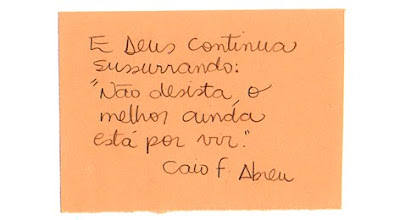 E Deus continua
sussurrando:
"Não desista, o
melhor ainda
está por vir."
Caio F. Abreu